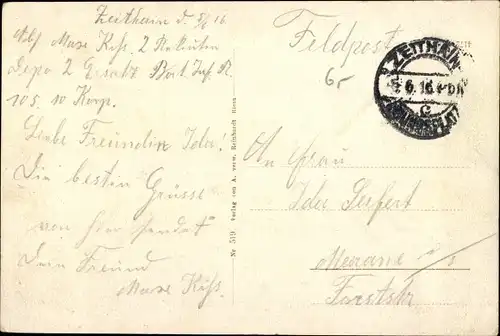 Zeithain d. 8/6 16
Abs. Max Kiß. 2 Rekruten
Depo 2 Ersatz Bat. Inf. R.
105. 10 Korp.
Liebe Freundin Ida!
Die besten Grüsse
von hier sendet
Dein Freund
Max Kiß.
No 519. Verlag von A. verw. Reinhardt Riesa
Feldpost
6,-
ZEITHAIN
6. 16. 4-5N
c
ÜBUNGSPLATZ
An Frau
Ida Seifert
Meerane i/S
Forststr